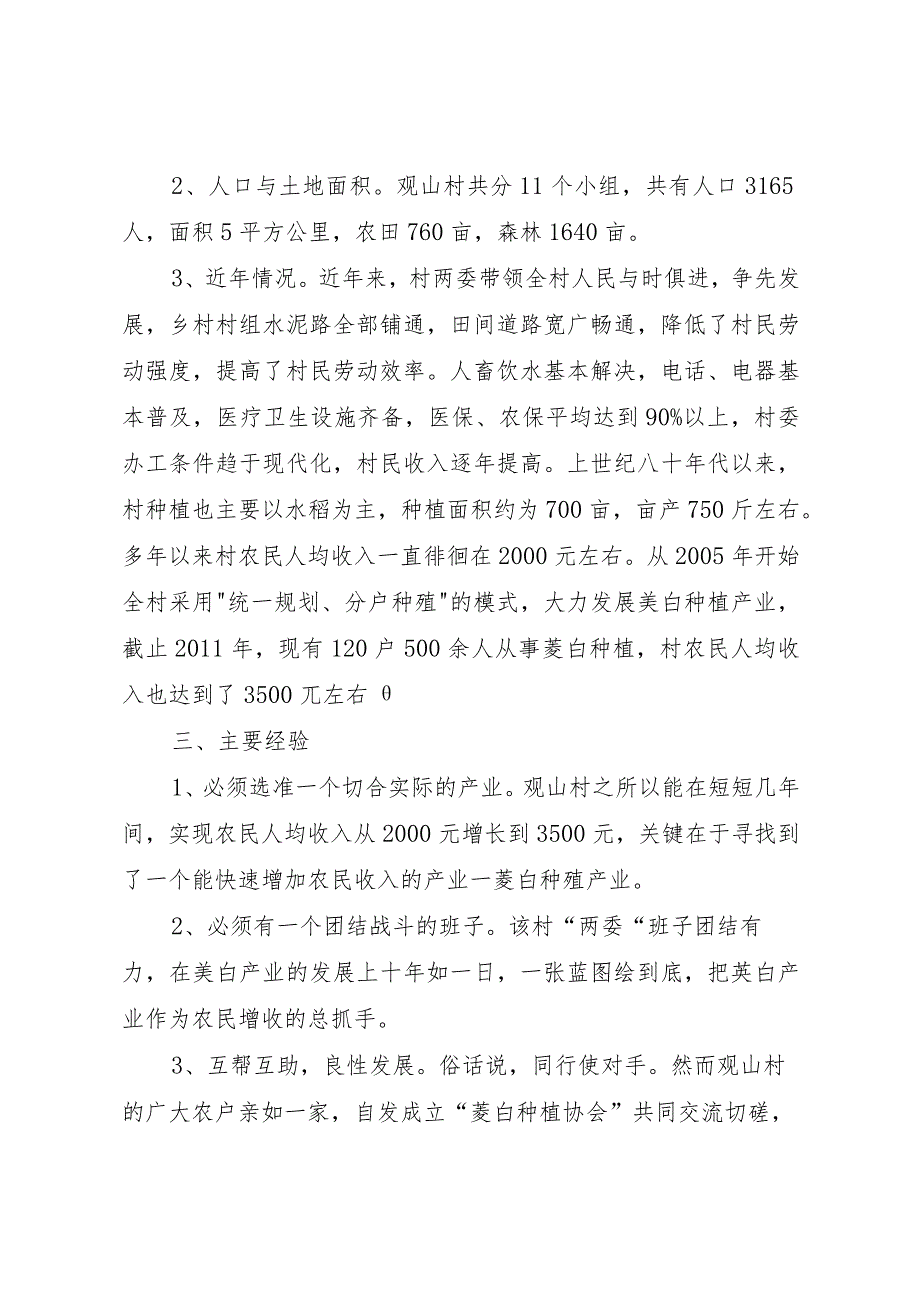 2、人口与土地面积。观山村共分 11 个小组，共有人口 3165
人，面积 5 平方公里，农田 760 亩，森林 1640 亩。
3、近年情况。近年来，村两委带领全村人民与时俱进，争先发
展，乡村村组水泥路全部铺通，田间道路宽广畅通，降低了村民劳
动强度，提高了村民劳动效率。人畜饮水基本解决，电话、电器基
本普及，医疗卫生设施齐备，医保、农保平均达到 90%以上，村委
办工条件趋于现代化，村民收入逐年提高。上世纪八十年代以来，
村种植也主要以水稻为主，种植面积约为 700 亩，亩产 750 斤左右。
多年以来村农民人均收入一直徘徊在 2000 元左右。从 2005 年开始
全村采用"统一规划、分户种殖"的模式，大力发展美白种植产业，
截止 2011 年，现有 120 户 500 余人从事菱白种植，村农民人均收
入也达到了 3500 兀左右 θ
三、主要经验
1、必须选准一个切合实际的产业。观山村之所以能在短短几年
间，实现农民人均收入从 2000 元增长到 3500 元，关键在于寻找到
了一个能快速增加农民收入的产业一菱白种殖产业。
2、必须有一个团结战斗的班子。该村“两委“班子团结有
力，在美白产业的发展上十年如一日，一张蓝图绘到底，把英白产
业作为农民增收的总抓手。
3、互帮互助，良性发展。俗话说，同行使对手。然而观山村
的广大农户亲如一家，自发成立“菱白种植协会”共同交流切磋，